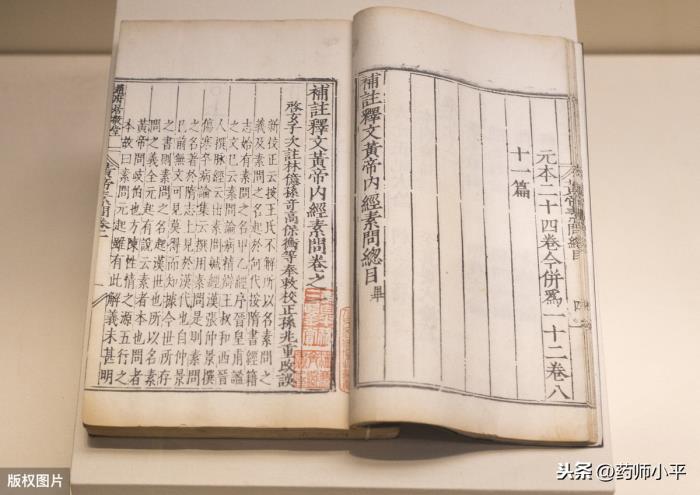 元本二十四卷今併爲一十二卷八
十一篇
補註釋文黃帝內經素問總目 畢
補註釋文黃帝內經素問卷之一
啓玄子次註林億孫奇高保衡等奉敕校正孫兆重改誤
新校正云按王氏不解所以名素問之
義及素問之名起於何代按隋書經籍
志始有素問之名甲乙經序晉皇甫謐
之文已云素問論病精辯王叔和西晉
人撰脉經云出素問鍼經漢張仲景撰
傷寒卒病論集云撰用素問是則素問
之名著於隋志上見於漢代也自仲景
已前無文可見莫得而知據今世所存
之書則素問之名起漢世也所以名素
問之義全元起有說云素者本也問者
黃帝問岐伯也方陳性情之源五行之
本故曰素問元起雖有此解義未甚明
版权图片
头条@药师小平